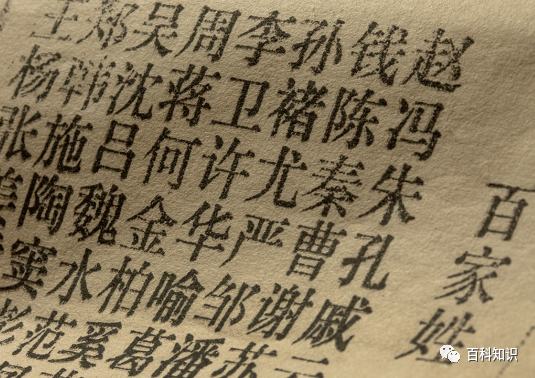 百家姓
赵钱孙李周吴郑王
冯陈褚卫蒋沈韩杨
朱秦尤许何吕施张
孔曹严华金魏陶姜
戚谢邹喻柏水窦
云苏潘葛奚范彭
百科知识